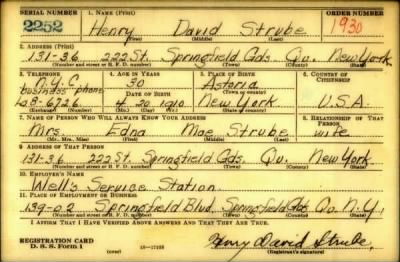 SERIAL NUMBER 1. NAME (Print) ORDER NUMBER
2252 Henry David Strube 1930
(First) (Middle) (Last)
2. ADDRESS (Print)
131-36 222 St. Springfield Gds. Qo. New York
(Number and street or R. F. D. number) (Town) (County) (State)
3. TELEPHONE 4. AGE IN YEARS 5. PLACE OF BIRTH 6. COUNTRY OF CITIZENSHIP
N.Y.C. 30 Astoria
business phone DATE OF BIRTH (Town or county)
4 20 1910 New York U.S.A.
(Exchange) (Number) (Mo.) (Day) (Yr.) (State or country)
7. NAME OF PERSON WHO WILL ALWAYS KNOW YOUR ADDRESS 8. RELATIONSHIP OF THAT PERSON
Mrs. Edna Mae Strube wife
(Mr., Mrs., Miss) (First) (Middle) (Last)
9. ADDRESS OF THAT PERSON
131-36 222 St. Springfield Gds. Qo. New York
(Number and street or R. F. D. number) (Town) (County) (State)
10. EMPLOYER'S NAME
Well's Service Station
11. PLACE OF EMPLOYMENT OR BUSINESS
139-02 Springfield Blvd. Springfield Gds Qo. N.Y.
(Number and street or R. F. D. number) (Town) (County) (State)
I AFFIRM THAT I HAVE VERIFIED ABOVE ANSWERS AND THAT THEY ARE TRUE.
REGISTRATION CARD
D. S. S. Form 1 (over) 16-17105 Henry David Strube
(Registrant's signature)